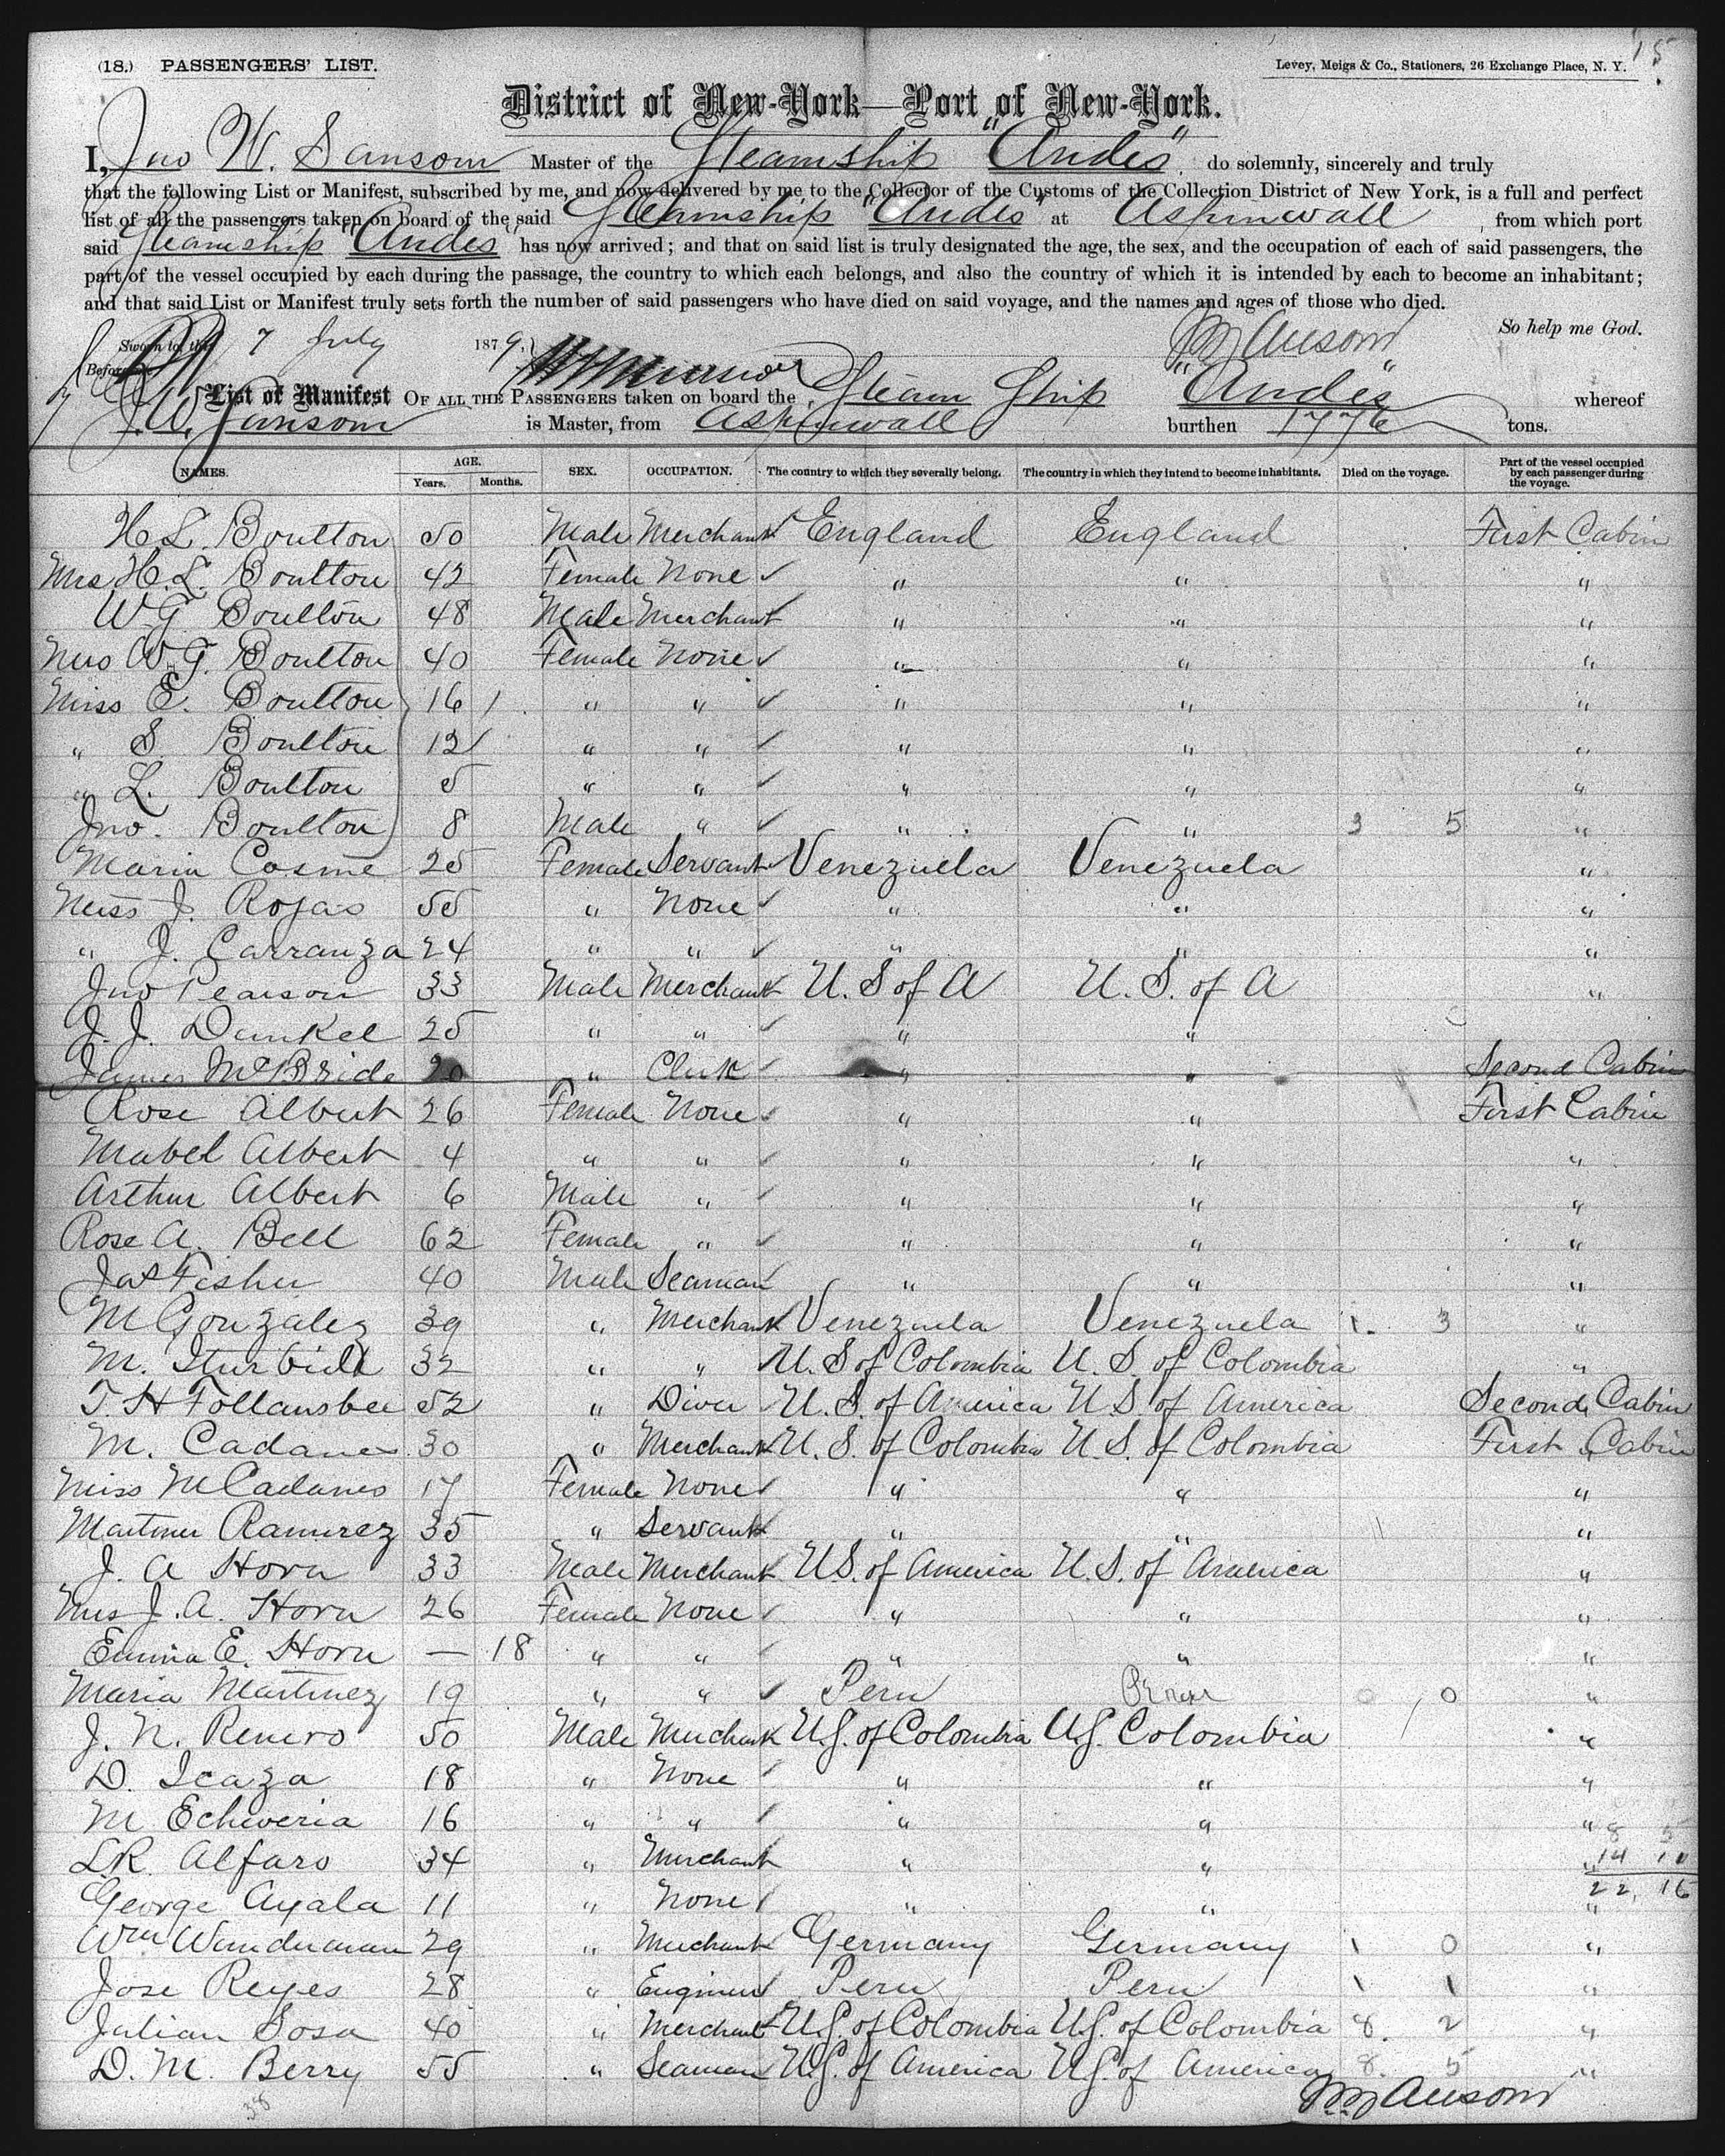 (18.) PASSENGERS' LIST.
Levey, Meigs & Co., Stationers, 26 Exchange Place, N. Y.
15
District of New-York—Port of New-York.
I, Jno W. Sansom Master of the Steamship "Andes", do solemnly, sincerely and truly
that the following List or Manifest, subscribed by me, and now delivered by me to the Collector of the Customs of the Collection District of New York, is a full and perfect
list of all the passengers taken on board of the said Steamship "Andes" at Aspinwall, from which port
said Steamship "Andes" has now arrived; and that on said list is truly designated the age, the sex, and the occupation of each of said passengers, the
part of the vessel occupied by each during the passage, the country to which each belongs, and also the country of which it is intended by each to become an inhabitant;
and that said List or Manifest truly sets forth the number of said passengers who have died on said voyage, and the names and ages of those who died.
So help me God.
Sworn to this 7 July 1879,
Before me
List or Manifest OF ALL THE PASSENGERS taken on board the Steam Ship "Andes" whereof
J.W. Sansom is Master, from Aspinwall burthen 1776 tons.
NAMES. AGE. Years. Months. SEX. OCCUPATION. The country to which they severally belong. The country in which they intend to become inhabitants. Died on the voyage. Part of the vessel occupied by each passenger during the voyage.
H L. Boulton 50 Male Merchant England England First Cabin
Mrs H. L. Boulton 42 Female None " " "
W G Boulton 48 Male Merchant " " "
Mrs W. G. Boulton 40 Female None " " "
Miss E. Boulton 16 " " " " "
" S Boulton 12 " " " " "
" L. Boulton 5 " " " " "
Jno. Boulton 8 Male " " " 3 5 "
Maria Cosme 25 Female Servant Venezuela Venezuela "
Miss J. Rojas 55 " None " " "
" J. Carranza 24 " " " " "
Jno Pearson 33 Male Merchant U. S of A U. S. of A "
J. J. Dunkel 25 " " " "
James McBride 20 " Clerk " " Second Cabin
Rose Albert 26 Female None " " First Cabin
Mabel Albert 4 " " " " "
Arthur Albert 6 Male " " " "
Rose A. Bell 62 Female " " " "
Jas Fisher 40 Male Seaman " " "
M Gonzalez 39 " Merchant Venezuela Venezuela 1. 3 "
M. Iturbide 32 " " U. S of Colombia U. S. of Colombia "
T. H Follansbee 52 " Diver U. S. of America U S. of America Second Cabin
M. Cadanes 30 " Merchant U. S. of Colombia U. S. of Colombia First Cabin
Miss M Cadanes 17 Female None " " "
Ramirez 35 " Servant " " "
J. A Horn 33 Male Merchant U S. of America U. S. of America "
Mrs J. A. Horn 26 Female None " " "
Emma E. Horn — 18 " " " " "
Maria Martinez 19 " " Peru 0 0 "
J. N. Renero 50 Male Merchant U S. of Colombia U S. Colombia "
D. Icaza 18 " None " " "
M Echeveria 16 " " " " "
L R. Alfaro 34 " Merchant " " "
8 5
14 10
22, 16
George Ayala 11 " None " " "
Wm Wunderman 29 " Merchant Germany Germany 1 0 "
Jose Reyes 28 " Engineer Peru Peru 1 1 "
Julian Sosa 40 " Merchant U S. of Colombia U S. of Colombia 8. 2 "
D. M. Berry 55 " Seaman U S. of America U S. of America 8. 5 "
38